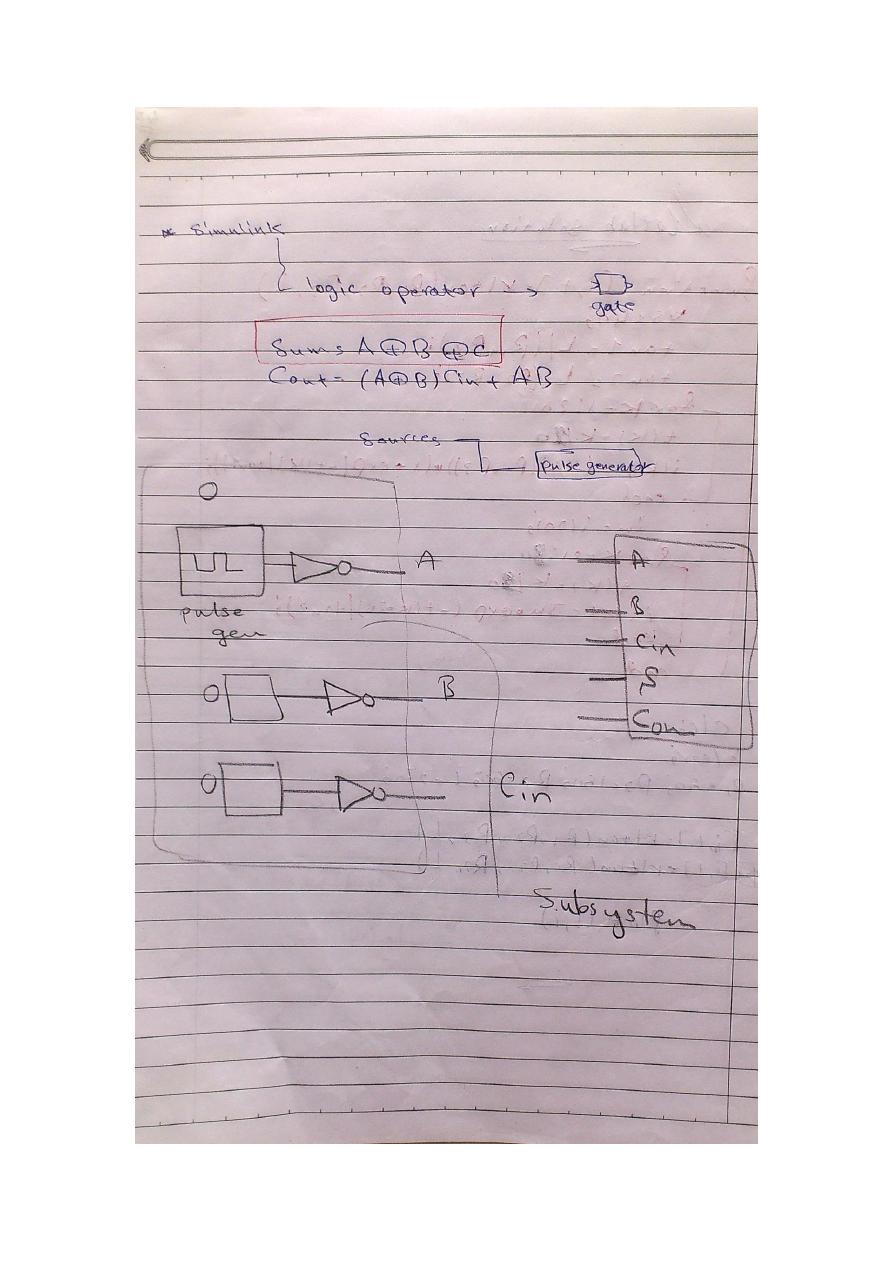 * Simulink
logic operator →
gate
Sum = A ⊕ B ⊕ C
Cout = (A⊕B) Cin + AB
Sources
pulse generator
A
pulse
gen
B
Cin
A
B
Cin
S
Cou
Subsystem